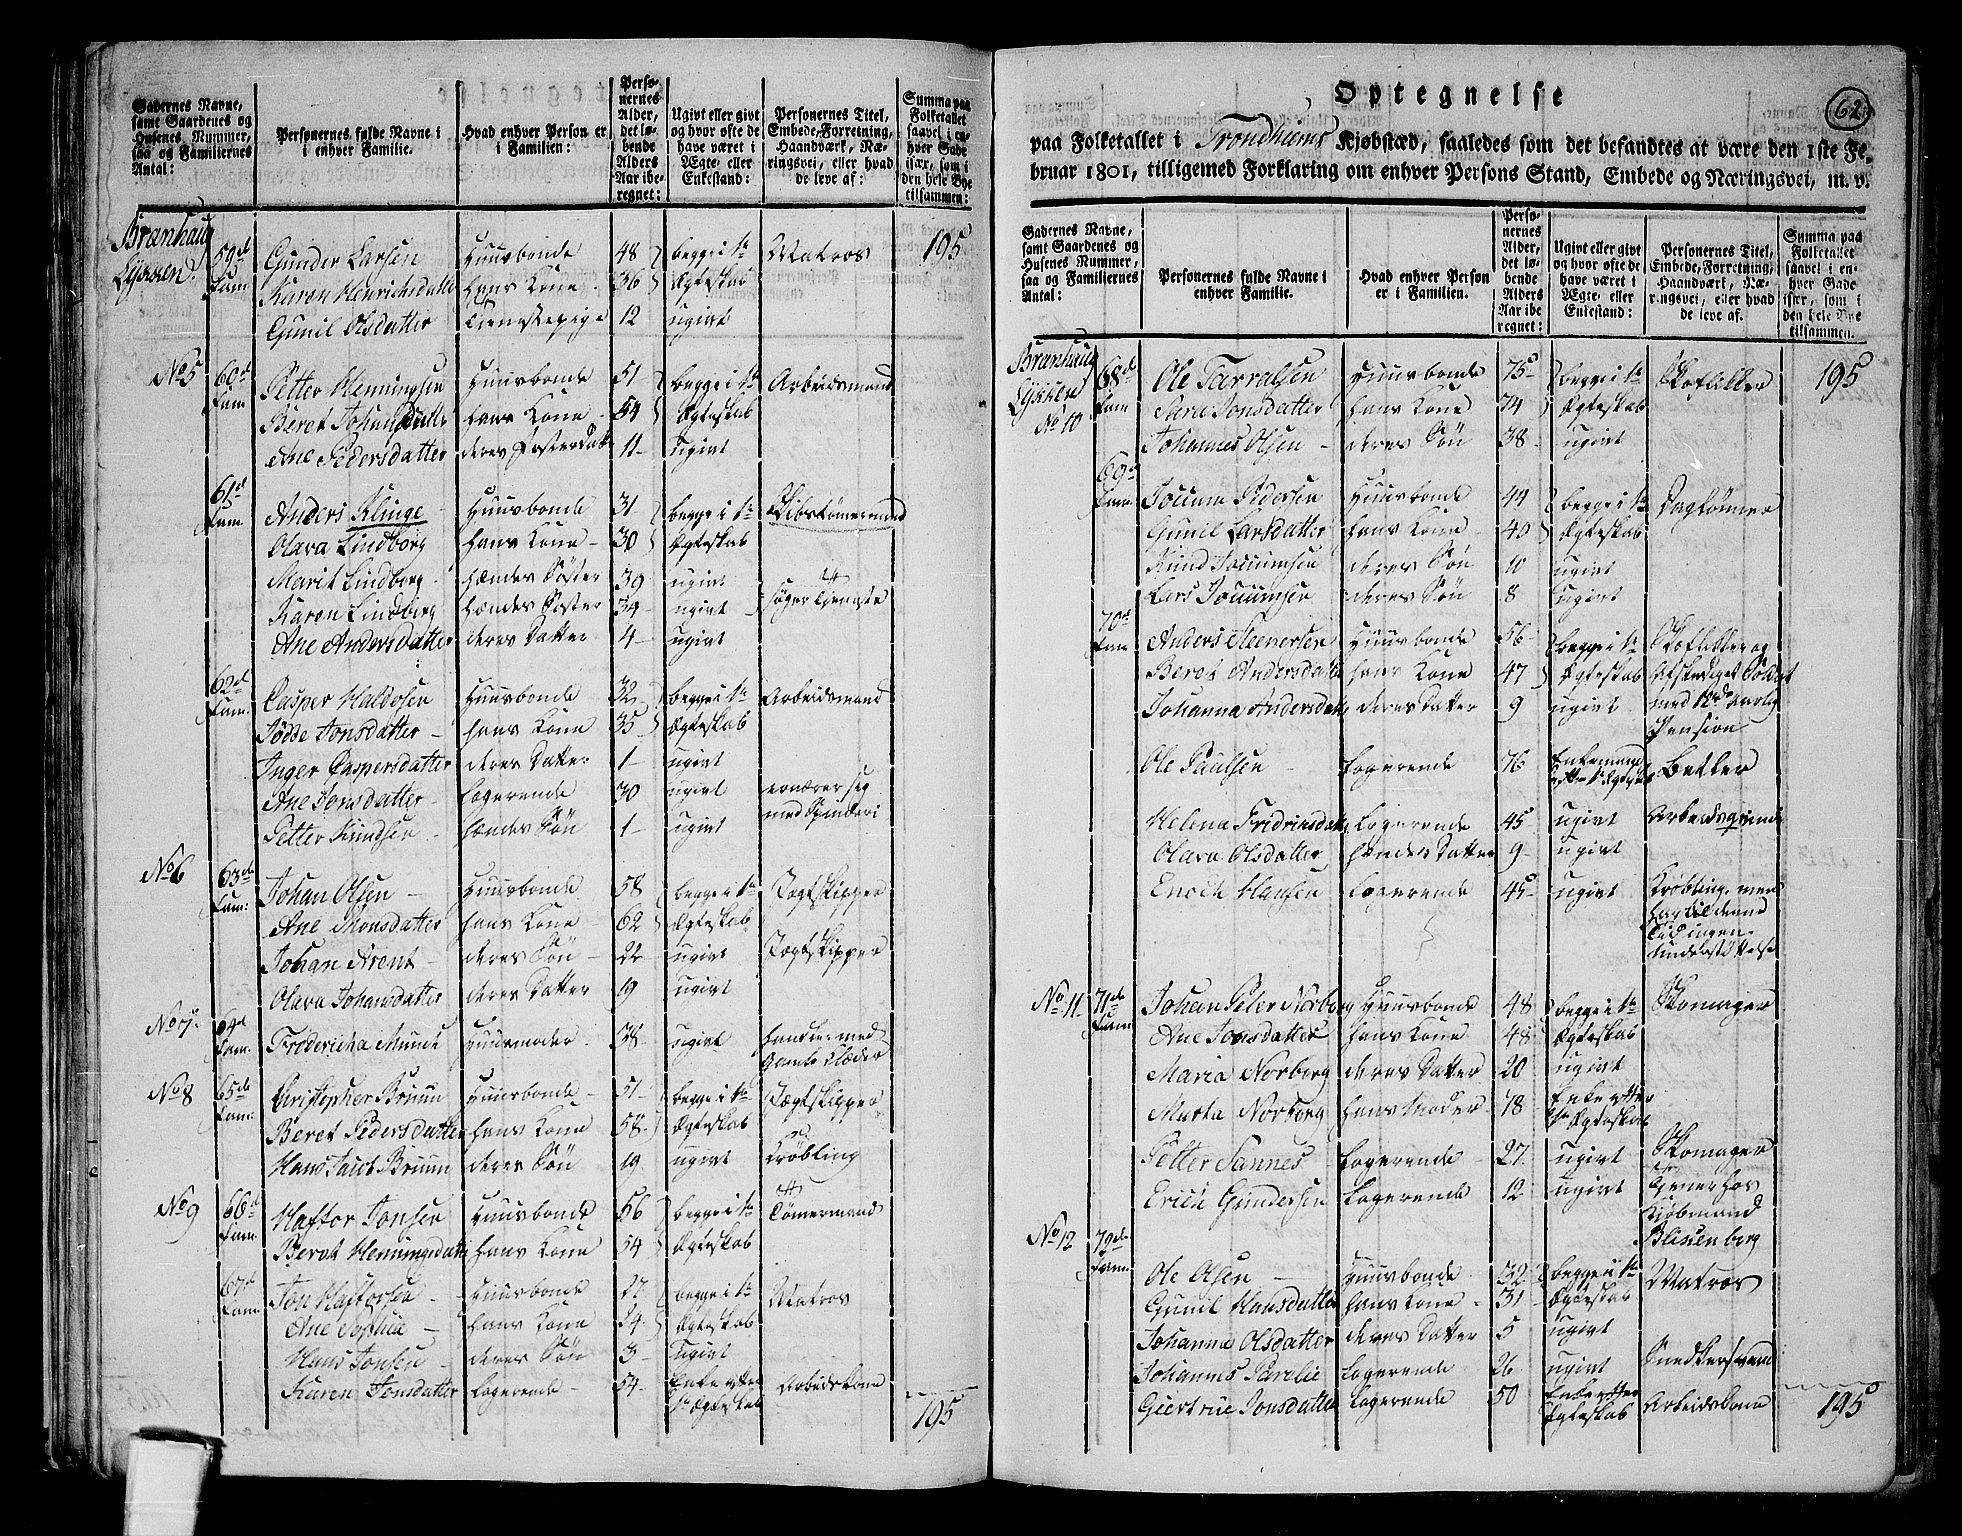 Gadernes Navne, samt Gaardenes og Husenes Nummer, saa og Familiernes Antal:
Personernes fulde Navne i enhver Familie.
Hvad enhver Person er i Familien:
Personernes Alder, det løbende Alders Aar iberegnet:
Ugivt eller givt og hvor ofte de have været i Ægte- eller Enkestand:
Personernes Titel, Embede, Forretning, Haandværk, Næringsvei, eller hvad de leve af:
Summa paa Folketallet saavel i enhver Gade især, som i den hele Bye tilsammen:
Branhaug Lykken 59de Fam Gunder Larsen Huusbonde 48 begge i 1te Matros 195
Karen Henrichsdatter hans Kone 36 Ægteskab
Gunil Olsdatter Tienestepige 12 ugivt
No 5 60de Fam Petter Henningsen Huusbonde 51 begge i 1te Arbeidsmand
Beret Johansdatter hans Kone 54 Ægteskab
Ane Pedersdatter deres Fosterdatt 11 ugivt
61de Fam Anders Klinge Huusbonde 31 begge i 1te Skibstømermand
Olava Lindborg hans Kone 30 Ægteskab
Marit Lindborg hændes Søster 39 ugivt
Karen Lindborg hændes Søster 34 ugivt søger Tieneste
Ane Andersdatter deres Datter 4 ugivt
62de Fam. Casper Haldosen Huusbonde 32 begge i 1te Arbeidsmand
Jødde Jonsdatter hans Kone 35 Ægteskab
Inger Caspersdatter deres Datter 1 ugivt
Ane Jonsdatter Logerende 30 ugivt ernærer sig
Petter Knudsen hændes Søn 1 ugivt med Spinderi
No 6 63de Fam: Johan Olsen Huusbonde 58 begge i 1te Jægtskipper
Ane Monsdatter hans Kone 62 Ægteskab
Johan Arent deres Søn 22 ugivt Jægtskipper
Olava Johansdatter deres Datter 19 ugivt
No 7 64de Fam. Fridericha Munch Huusmoder 38 ugivt handler med
gamle Klæder
No 8 65de Fam: Christopher Bruun Huusbonde 51 begge i 1te Jægtskipper
Beret Pedersdatter hans Kone 58 Ægteskab
Hans Jacob Bruun deres Søn 19 ugivt Krøbling
No 9 66de Fam Haftor Jonsen Huusbonde 56 begge i 1te Tømermand
Beret Henningsdatter hans Kone 54 Ægteskab
67de Fam Jon Haftorsen Huusbonde 27 begge i 1te Matros
Ane Sophia hans Kone 34 Ægteskab
Hans Jonsen deres Søn 3 ugivt
Karen Jonsdatter Logerende 54 Enke efter Arbeidskone
1te Ægteskab
195
62
Optegnelse
paa Folketallet i Trondhiems Kjøbstæd, saaledes som det befandtes at være den 1ste Februar 1801, tilligemed Forklaring om enhver Persons Stand, Embede og Næringsvei, m. v.
Gadernes Navne, samt Gaardenes og Husenes Nummer, saa og Familiernes Antal:
Personernes fulde Navne i enhver Familie.
Hvad enhver Person er i Familien.
Personernes Alder, det løbende Alders Aar iberegnet:
Ugivt eller givt og hvor ofte de have været i Ægte- eller Enkestand:
Personernes Titel, Embede, Forretning, Haandværk, Næringsvei, eller hvad de leve af.
Summa paa Folketallet saavel i enhver Gade især, som i den hele Bye tilsammen.
Branhaug Lykken No 10 68de Fam Ole Tarralsen Huusbonde 75 begge i 1te Skoflikker 195
Sara Jonsdatter hans Kone 74 Ægteskab
Johannes Olsen deres Søn 38 ugivt
69de Fam Jocum Pedersen Huusbonde 44 begge i 1te Daglønner
Gunil Larsdatter hans Kone 40 Ægteskab
Knud Jocumsen deres Søn 10 ugivt
Lars Jocumsen deres Søn 8 ugivt
70de Fam Anders Steenersen Huusbonde 56 begge i 1te Skoflikker og
Beret Andersdatter hans Kone 47 Ægteskab Afskediget Soldat
Johanna Andersdatt deres Datter 9 ugivt med aarlig
Pension
Ole Paulsen Logerende 76 Enkemand efter 1te Ægteskab Betler
Helena Fridrichsdatt Logerende 45 ugivt Arbeidsqvinde
Olava Olsdatter hændes Datter 9 ugivt
Enoch Hansen Logerende 45 ugivt Krøbling, men
har til denne
Tid ingen
understøttelse
No 11 71de Fam: Johan Peter Norberg Huusbonde 48 begge i 1te Skomager
Ane Jonsdatter hans Kone 48 Ægteskab
Maria Norberg deres Datter 20 ugivt
Marta Norberg hans Moder 78 Enke efter
1te Ægteskab
Petter Sannes Logerende 27 ugivt Skomager
Erich Gundersen Logerende 12 ugivt tiener hos
Kiøbmand
No 12 72de Fam: Ole Olsen Huusbonde 32 begge i 1te Matros
Gunil Hansdatter hans Kone 31 Ægteskab
Johanna Olsdatter deres Datter 5 ugivt
Johannes Parelie Logerende 26 ugivt Snedkersvend
Giertrue Jonsdatter Logerende 50 Enke efter Arbeidskone
Ægteskab
195